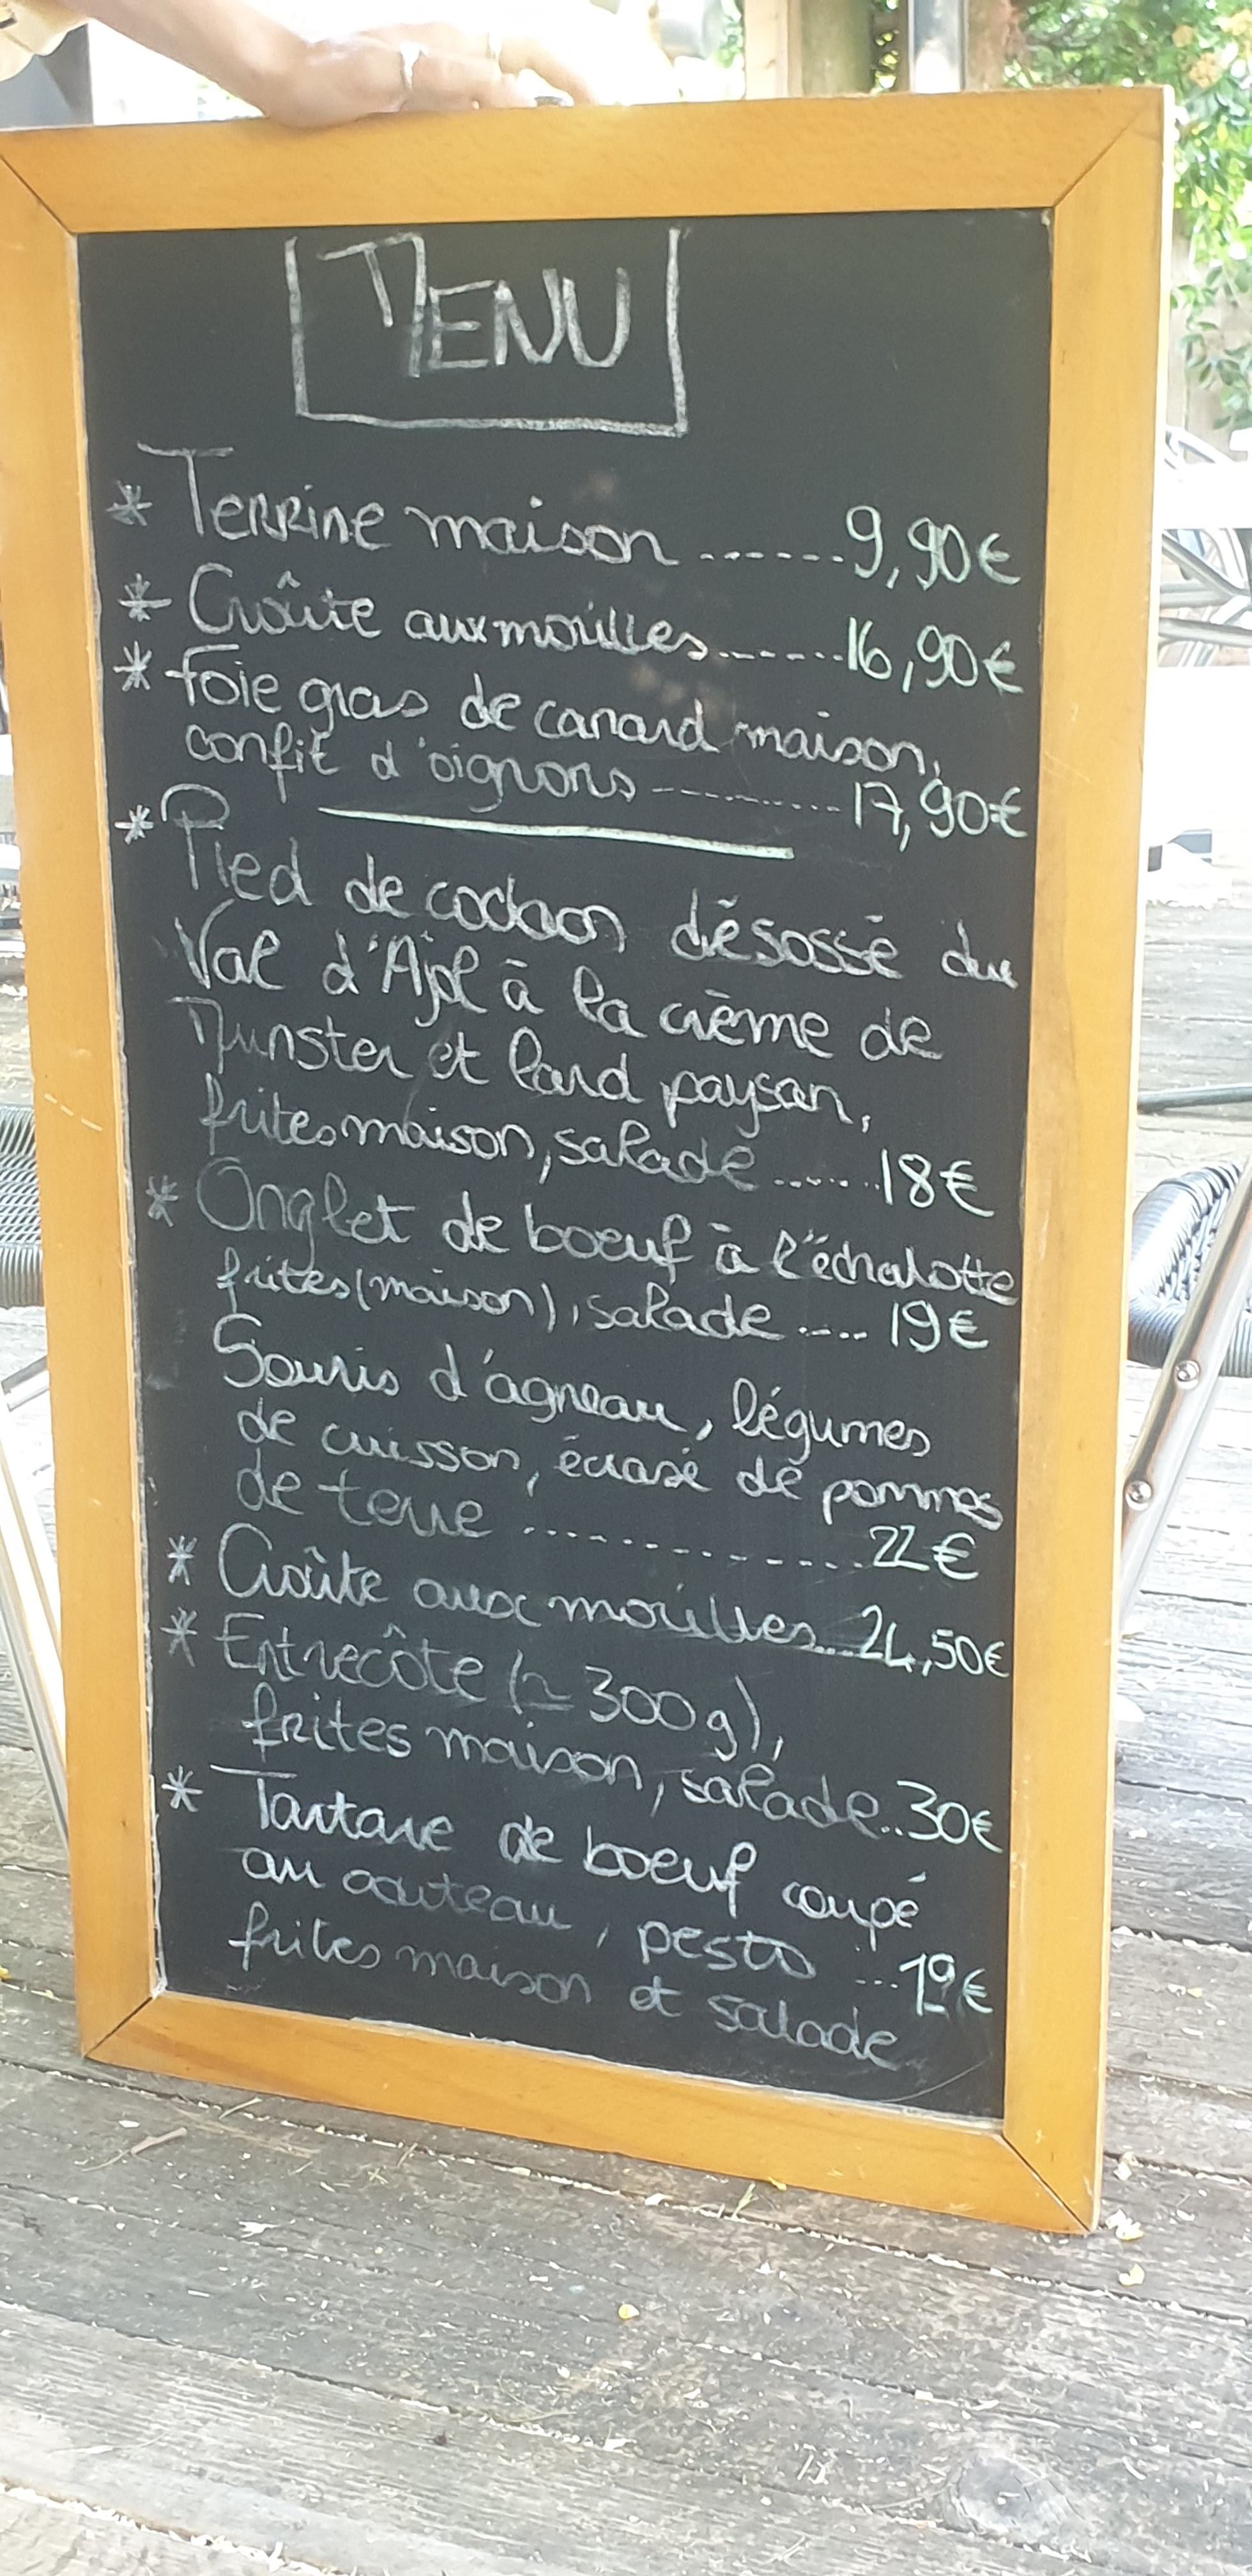 MENU
* Terrine maison ...... 9,90€
* Croûte aux morilles ...... 16,90€
* Foie gras de canard maison,
confit d'oignons ---------- 17,90€
* Pied de cochon désossé du
Val d'Ajol à la crème de
Munster et lard paysan,
frites maison, salade ...... 18€
* Onglet de boeuf à l'échalotte
frites (maison), salade .... 19€
Souris d'agneau, légumes
de cuisson, écrasé de pommes
de terre .............. 22€
* Croûte aux morilles... 24,50€
* Entrecôte (≃ 300g),
frites maison, salade.. 30€
* Tartare de boeuf coupé
au couteau, pesto ... 19€
frites maison et salade